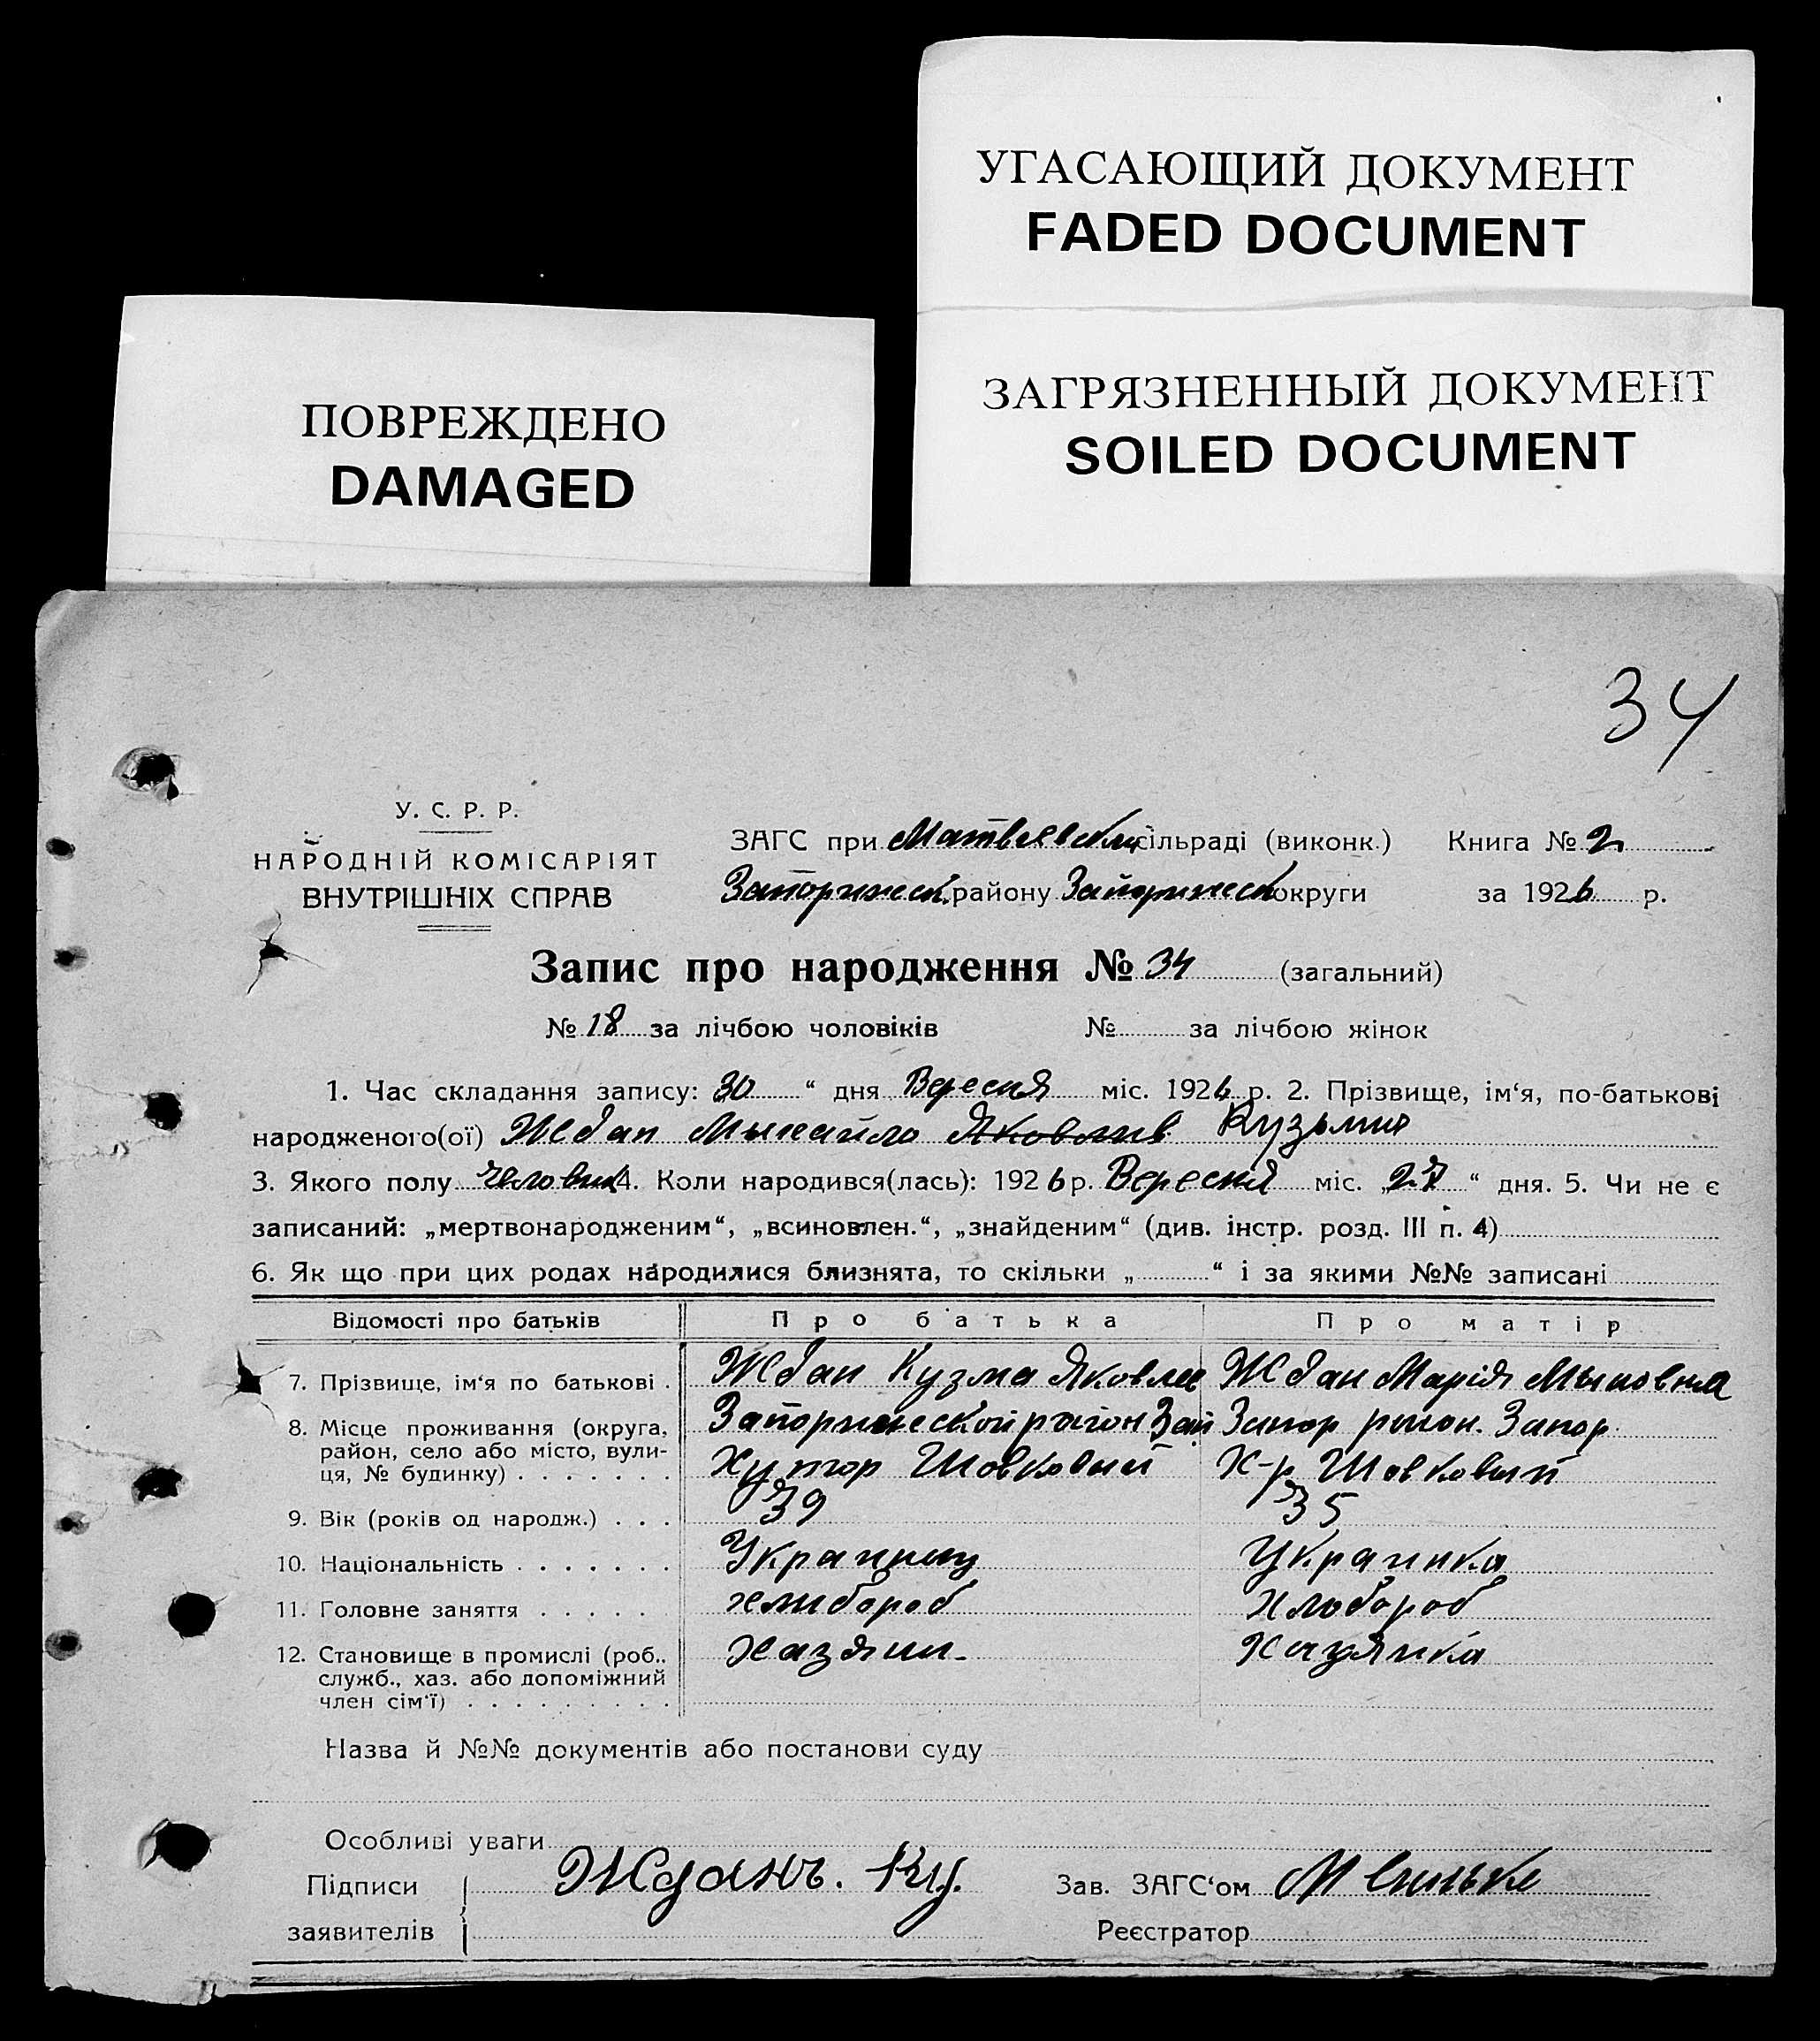 УГАСАЮЩИЙ ДОКУМЕНТ
FADED DOCUMENT
ЗАГРЯЗНЕННЫЙ ДОКУМЕНТ
SOILED DOCUMENT
ПОВРЕЖДЕНО
DAMAGED
34
У. С. Р. Р.
НАРОДНІЙ КОМІСАРІЯТ
ВНУТРІШНІХ СПРАВ
ЗАГС при сільраді (виконк.) Книга № 2
району округи за 1926 р.
Запис про народження № 34 (загальний)
№ 18 за лічбою чоловіків № за лічбою жінок
1. Час складання запису: 30 “ дня Вересня міс. 1926 р. 2. Прізвище, ім‘я, по-батькові
народженого(ої) Ждан Мыхайло Яковлив Кузьмич
3. Якого полу 4. Коли народився(лась): 1926 р. Вересня міс. „27“ дня. 5. Чи не є
записаний: „мертвонародженим“, „всиновлен.“, „знайденим“ (див. інстр. розд. III п. 4)
6. Як що при цих родах народилися близнята, то скільки „ “ і за якими №№ записані
Відомості про батьків Про батька Про матір
7. Прізвище, ім‘я по батькові . Ждан Кузма Яковлев Ждан Марія
8. Місце проживання (округа, район Зап Запор район. Запор
район, село або місто, вули- Хутор Шовковый Х-р Шовковый
ця, № будинку) . . . . . . .
9. Вік (років од народж.) . . . 39 35
10. Національність . . . . . . . Украинец Украинка
11. Головне заняття . . . . . хлибороб Хлибороб
12. Становище в промислі (роб., Хазяин. Хазяика
служб., хаз. або допоміжний
член сім‘ї) . . . . . . . . .
Назва й №№ документів або постанови суду
Особливі уваги
Підписи Жданъ. Ку. Зав. ЗАГС‘ом
заявителів Реєстратор